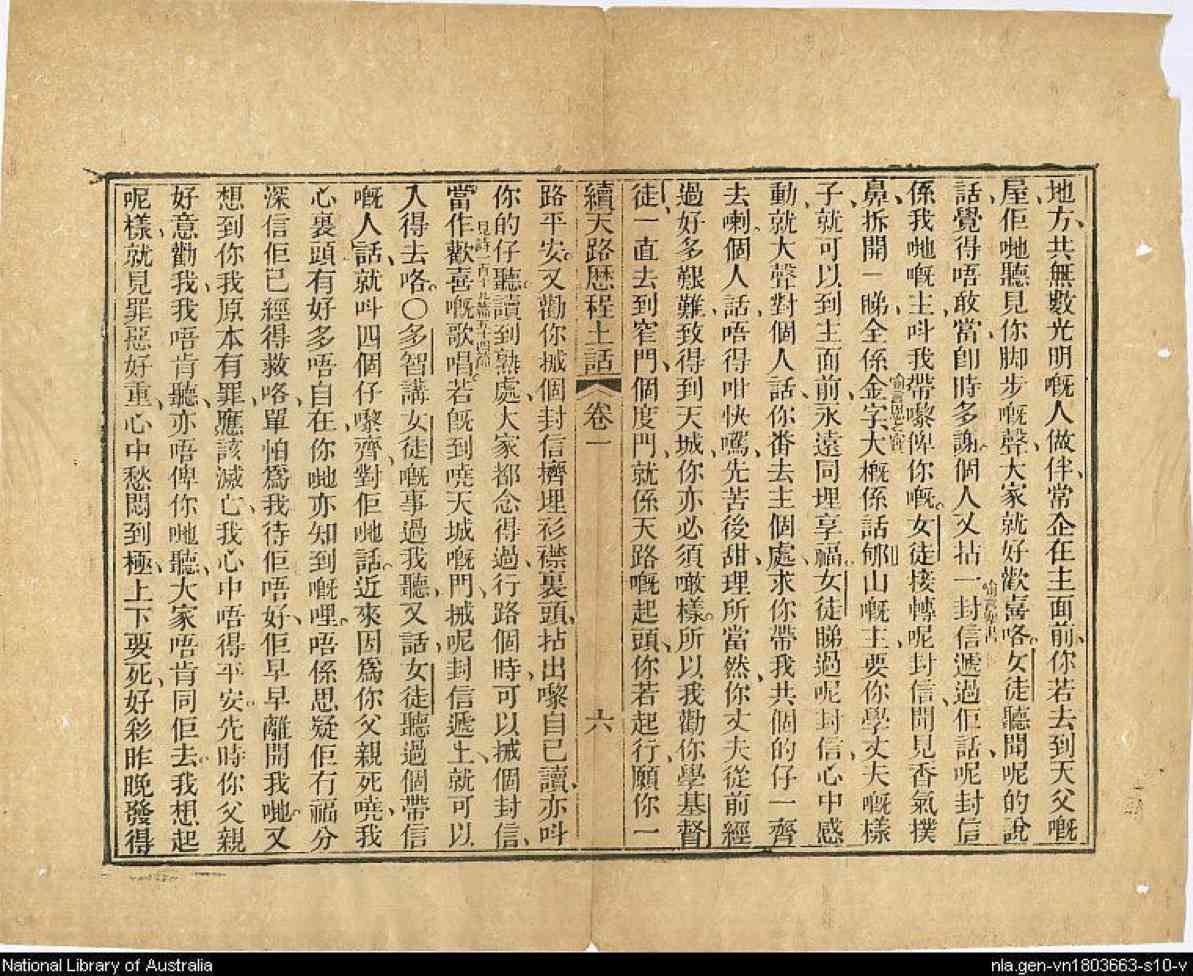 地方、共無數光明嘅人做伴、常企在主面前、你若去到天父嘅
屋、佢哋聽見你脚步嘅聲、大家就好歡喜咯。女徒聽聞呢的說
話、覺得唔敢當、卽時多謝個人、又拈一封信遞過佢、話呢封信
係我哋嘅主、呌我帶嚟俾你嘅。女徒接轉呢封信、聞見香氣撲
鼻、拆開一睇、全係金字、大槪係話郇山嘅主、要你學丈夫嘅樣
子、就可以到主面前、永遠同埋享福。女徒睇過呢封信、心中感
動、就大聲對個人話、你番去主個處、求你帶我共個的仔一齊
去喇。個人話、唔得咁快噃、先苦後甜、理所當然、你丈夫從前經
過好多艱難、致得到天城、你亦必須噉樣。所以我勸你學基督
徒、一直去到窄門、個度門、就係天路嘅起頭、你若起行、願你一
續天路歷程土話 卷一 六
路平安。又勸你搣個封信擠埋衫襟裏頭、拈出嚟自己讀、亦呌
你的仔聽、讀到熟處、大家都念得過、行路個時、可以搣個封信、
當作歡喜嘅歌唱、見詩一百十九篇五十四節 若旣到曉天城嘅門、搣呢封信遞上、就可以
入得去咯。〇多智講女徒嘅事過我聽、又話女徒聽過個帶信
嘅人話、就呌四個仔嚟齊、對佢哋話、近來因爲你父親死曉、我
心裏頭有好多唔自在、你哋亦知到嘅哩。唔係思疑佢冇福分、
深信佢已經得救咯、單怕爲我待佢唔好、佢早早離開我哋。又
想到你我原本有罪、應該滅亡、我心中唔得平安。先時你父親
好意勸我、我唔肯聽、亦唔俾你哋聽、大家唔肯同佢去。我想起
呢樣、就見罪惡好重、心中愁悶到極、上下要死、好彩昨晚發得